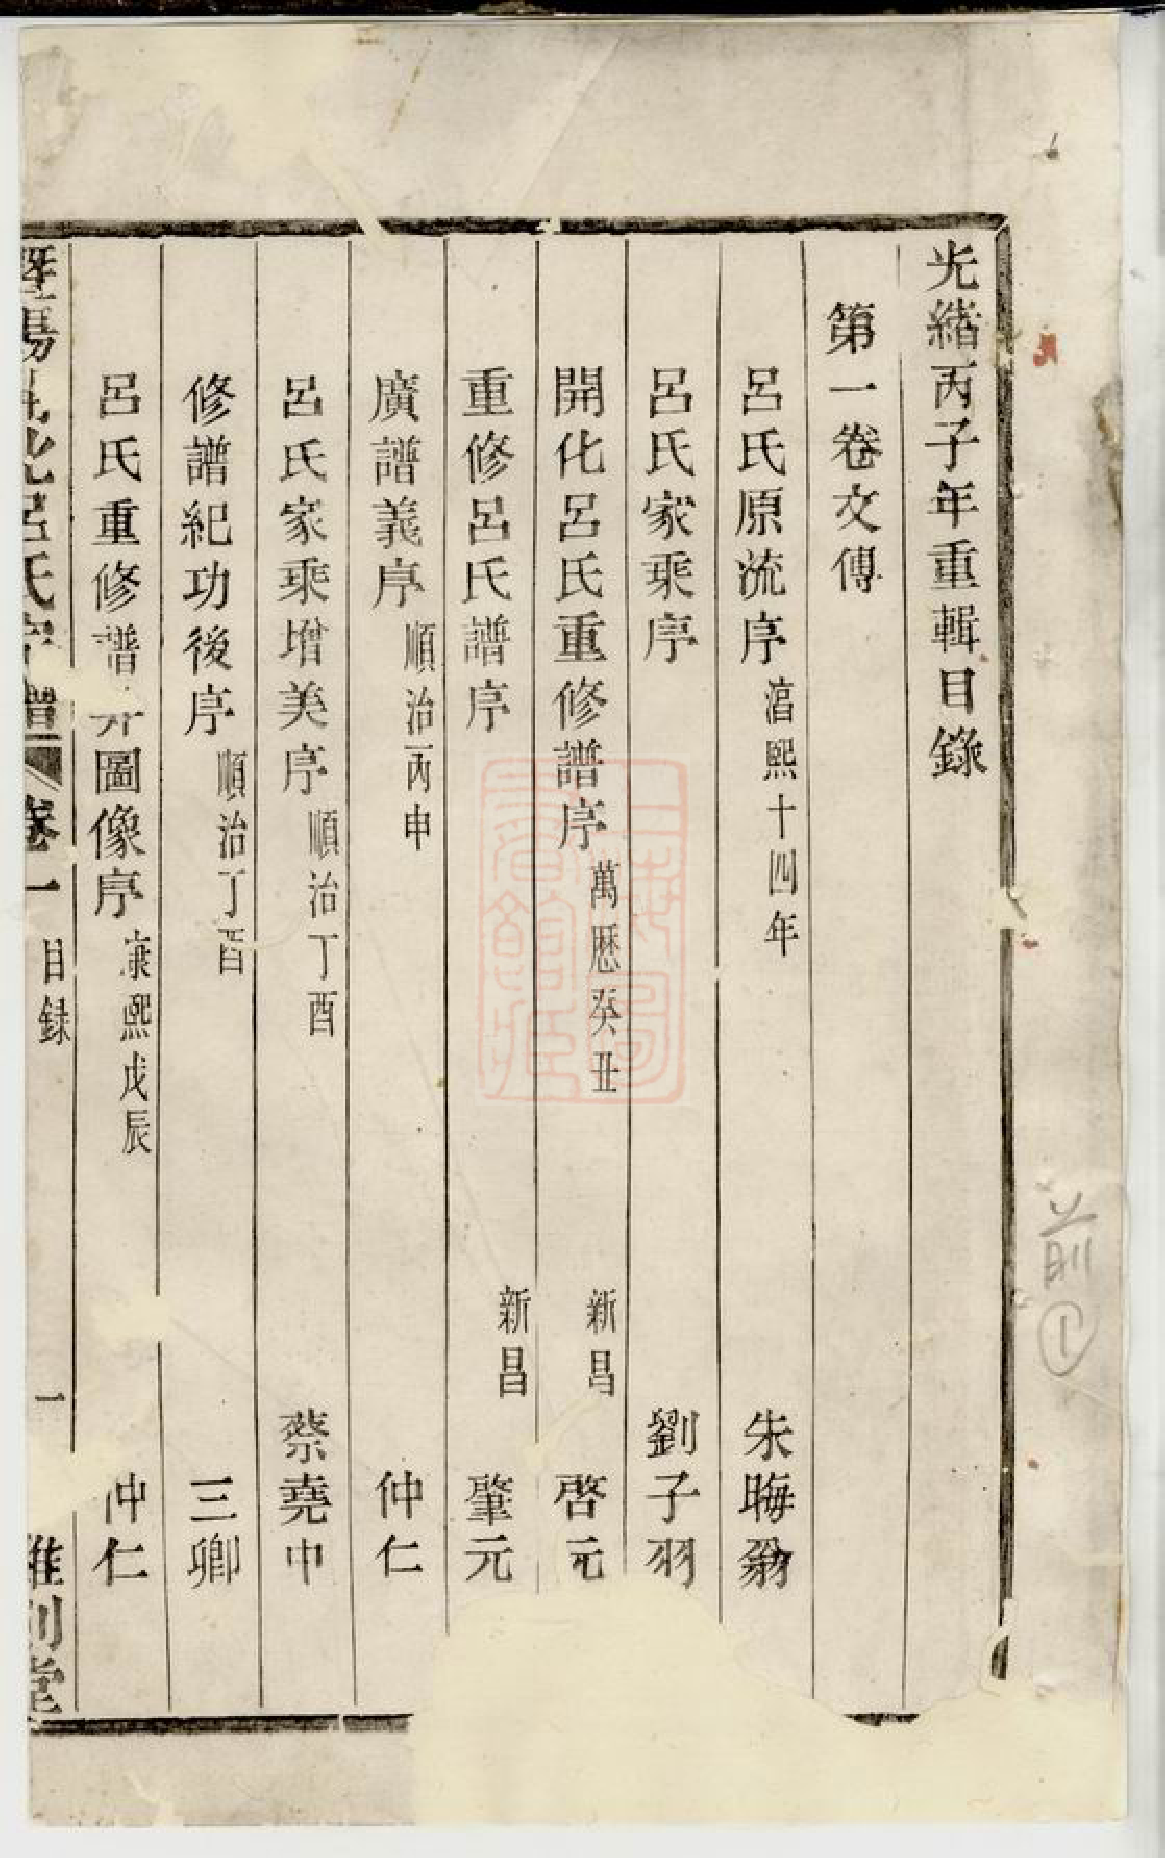 光緒丙子年重輯目錄
第一卷文傳
呂氏原流序 湻熙十四年 朱晦翁
呂氏家乘序 劉子羽
開化呂氏重修譜序 萬歷癸丑 新昌 啓元
重修呂氏譜序 新昌 肇元
廣譜義序 順治丙申 仲仁
呂氏家乘增美序 順治丁酉 蔡堯中
修譜紀功後序 順治丁酉 三卿
呂氏重修譜弁圖像序 康熙戊辰 仲仁
暨陽開化呂氏宗譜 卷一 目録 一
前①